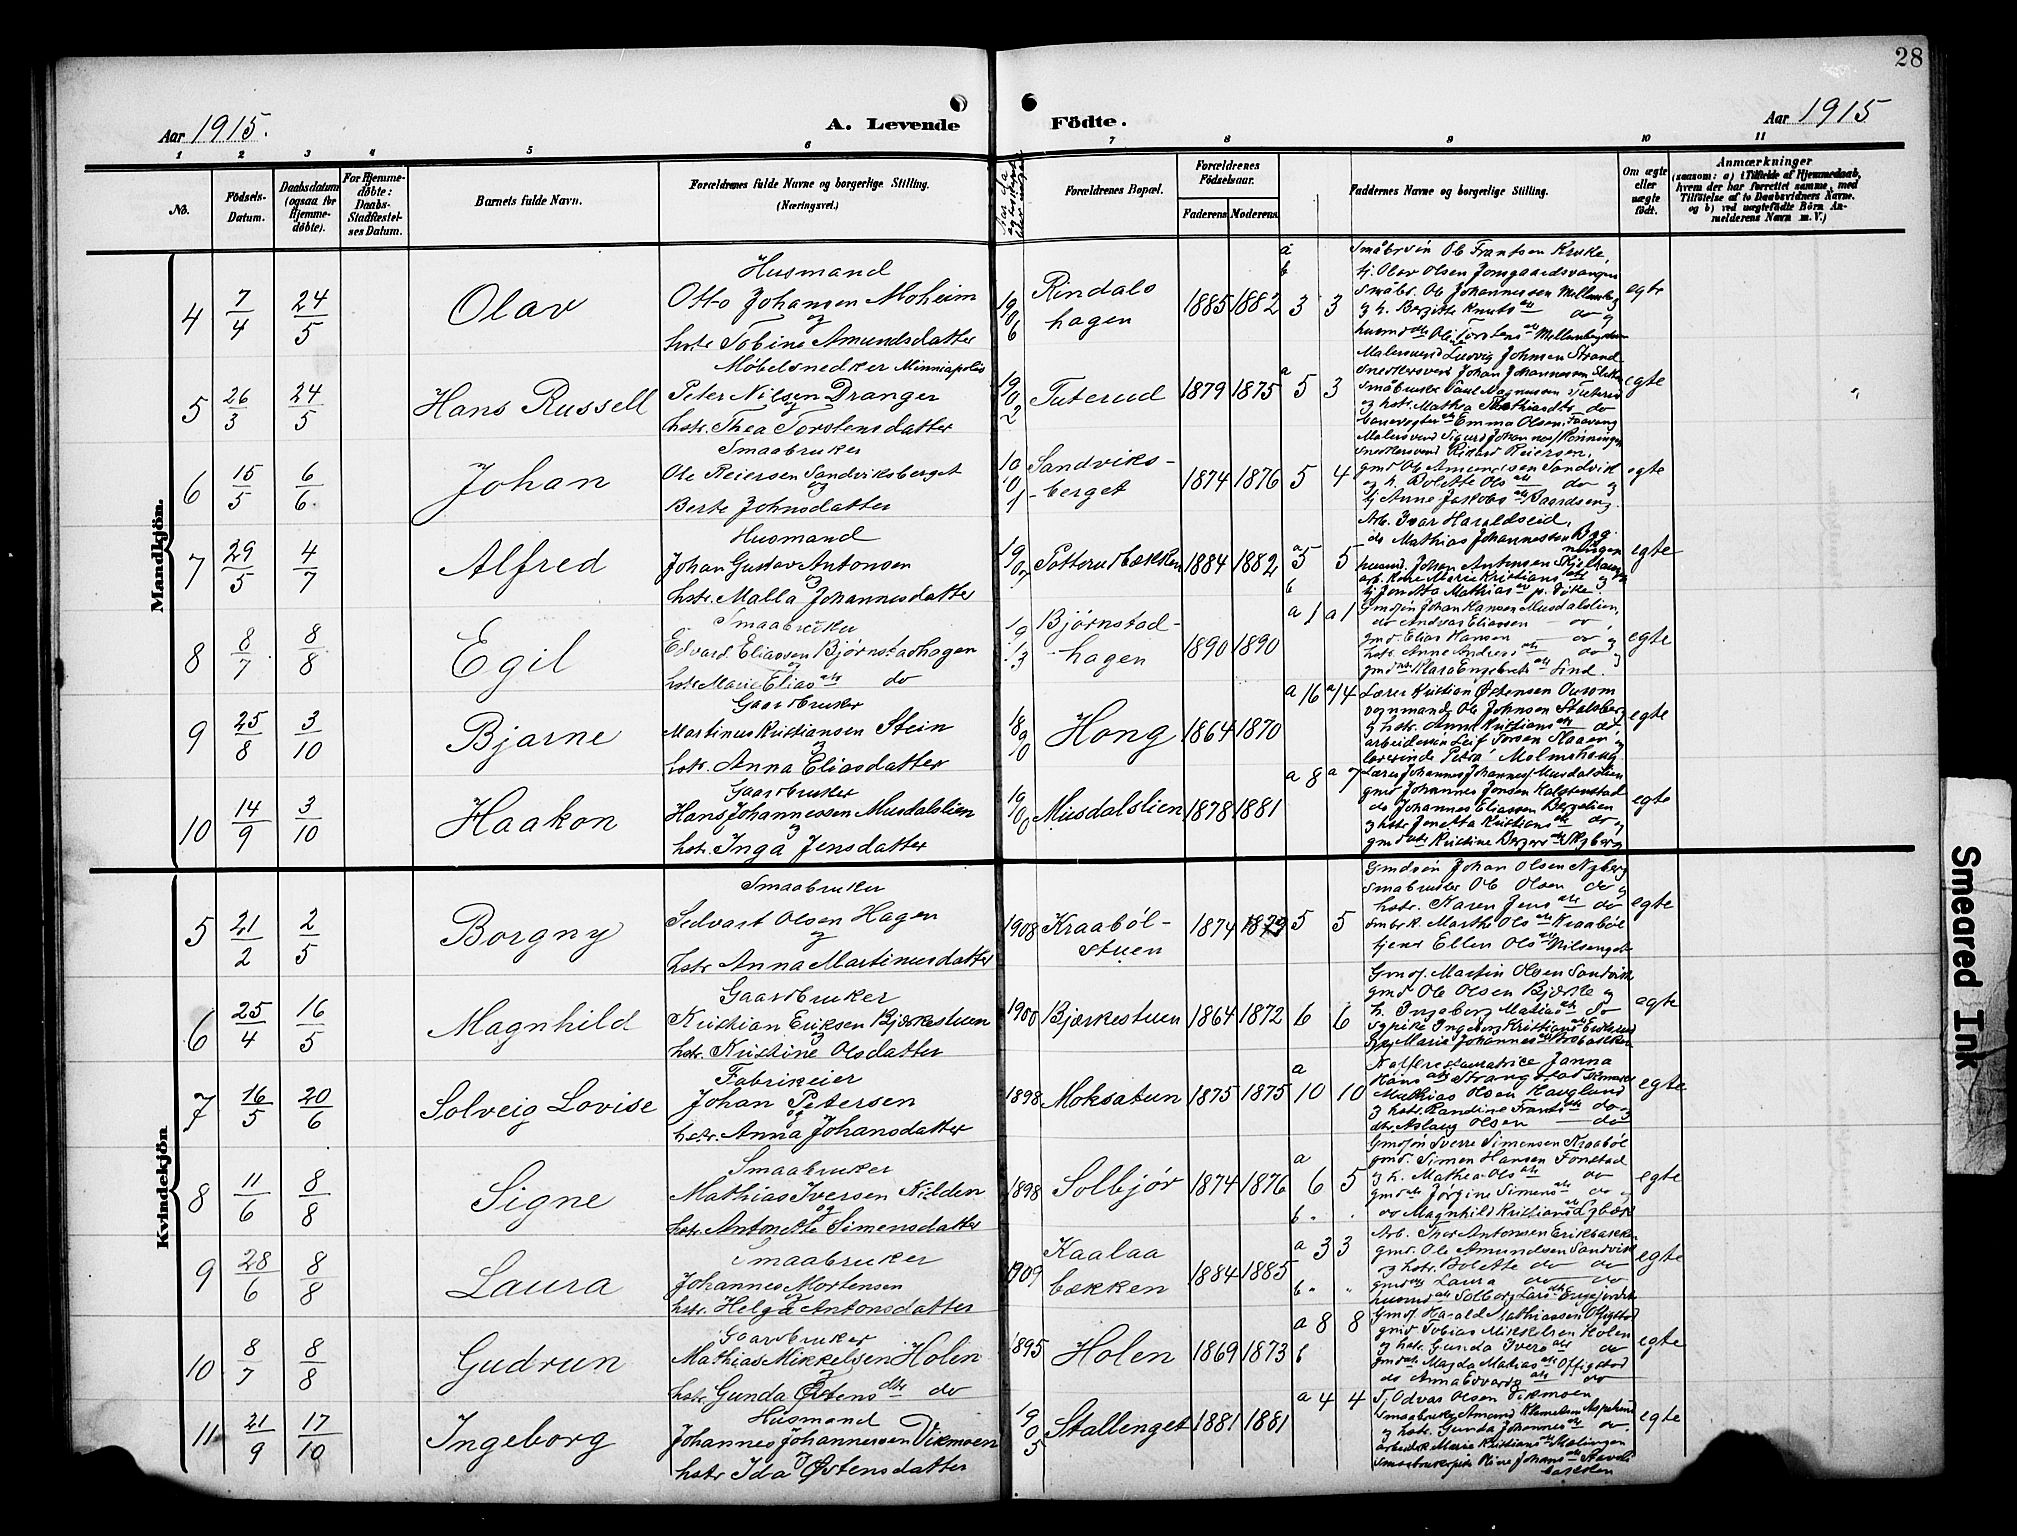 28
Aar 1915.
A. Levende Födte.
Aar 1915
1 2 3 4 5 6 7 8 9 10 11
No.
Födsels-Datum.
Daabsdatum (ogsaa for Hjemme-döbte).
For Hjemme-döbte: Daabs-Stadfæstel-ses Datum.
Barnets fulde Navn.
Forældrenes fulde Navne og borgerlige Stilling. (Næringsvei.)
Forældrenes Bopæl.
Forældrenes Födselsaar.
Faderens Moderens
Faddernes Navne og borgerlige Stilling.
Om ægte eller uægte födt.
Anmærkninger (saasom: a) i Tilfælde af Hjemmedaab, hvem der har forrettet samme, med Tilföielse af to Daabsvidners Navne, og b) ved uægtefödte Börn Anmelderens Navn m. V.)
Mandkjön.
4 7/4 24/5 Olav
Husmand
Otto Johansen Moheim
og
hstr. Tobine Amundsdatter
1906 Rindals hagen 1885 1882 3 3
Småbr.søn Ole Frantsen Kruke,
tj. Olav Olsen Jonsgaardsvangen
småbr. Ole Johannessen Mellemberg
og h. Bergitte Knuts dtr do og
egte
5 26/3 24/5 Hans Russell
Møbelsnedker Minniapolis
Peter Nilsen Dranger
og
hstr. Thea Torstensdatter
1902 Tuterud 1879 1875 a 5 3
Malersvend Ludvig Johnsen Strand
Snedkersvend Johan Johannessen
Småbruker Paul Magnussen Tuterud
og hstr. Mathea Mathiasdtr do
Emma Olsen, Faavang
egte
6 15/5 6/6 Johan
Smaabruker
Ole Reiersen Sandviksberget
og
Berte Johnsdatter
1901 Sandviks-berget 1874 1876 5 4
Malersvend Sigurd Johannes/Rønningen
Snedkersvend Rikard Reiersen,
gmd. Ole Amundsen Sandvik
og h. Bolette Ols dtr do og
tj. Anne Jakobs dtr Baardseng
egte
7 29/5 4/7 Alfred
Husmand
Johan Gustav Antonsen
og
hstr. Malla Johannesdatter
1907 Potterudbækken 1884 1882 a 5 5 b
Arb. Ivar Haraldseid,
do Mathias Johannessen Bygningen
husmd. Johan Antonsen
arb. kone Marie Kristians dtr og
tj. Jenetta Mathias dtr p. Fikse
egte
8 8/7 8/8 Egil
Smaabruker
Edvard Eliassen Bjørnstadhagen
og
hstr Marie Elias dtr do
1913 Bjørnstad-hagen 1890 1890 a 1 a 1
Gmdsøn Johan Hansen Musdalslien,
do Andreas Eliassen — do,
gmd. Elias Hansen — do og
hstr. Anne Anders dtr do og
gmd dtr Klara Engebrets dtr Lind.
egte
9 25/8 3/10 Bjarne
Gaardbruker
Martinus Kristiansen Stein
og
hstr. Anna Eliasdatter
1890 Hong 1864 1870 a 16 a 14
Lærer Kristian Østensen Aurom
vognmand Ole Johnsen Stalsberg
og hstr. Anne Kristians dtr do,
Leif Torsen Haaen og
lærerinde Petra Malmshaug
egte
10 14/9 3/10 Haakon
Gaardbruker
Hans Johannessen Musdalslien
og
hstr. Inga Jensdatter
1900 Musdalslien 1878 1881 a 8 a 7
Lærer Johannes Johannes/Musdalslien
gmd. Johannes Jonsen Kalstenstad
do Johannes Eliassen Bergelien
og hstr. Jonetta Kristians dtr do og
gmd dtr Kristine Berger dtr Nyberg
egte
Kvindekjön
5 21/2 2/5 Borgny
Smaabruker
Sedvart Olsen Hagen
og
hstr Anna Martinusdatter
1908 Kraabøl-stuen 1874 1879 5 5
Gmdsøn Johan Olsen Nyberg
smabruker Ole Olsen do og
hstr. Karen Jens dtr do
smbrk. Marthe Ols dtr Kraabøl
tjener Ellen Ols dtr Nilsenget
egte
6 25/4 16/5 Magnhild
Gaardbruker
Kristian Eriksen Bjærkestuen
og
hstr. Kristine Olsdatter
1900 Bjærkestuen 1864 1872 6 6
Gmds. Martin Olsen Sandvik
gmd Ole Olsen Bjærke og
h. Ingeborg Matias dtr do
sypike Ingeborg Kristians dtr
Marie Johannes dtr Brobakken
egte
7 16/5 20/6 Solveig Lovise
Fabrikeier
Johan Petersen
og
hstr. Anna Johansdatter
1898 Moksatun 1875 1875 a 10 10
Kafferestauratrice Janna
Hans dtr Strangstad
Mathias Olsen Hauglund
og hstr. Randine Frants dtr do og
dtr Aslaug Olsen — do
egte
8 11/6 8/8 Signe
Smaabruker
Mathias Iversen Kilden
og
hstr. Antonette Simensdatter
1898 Solbjør 1874 1876 a 6 5 b " "
Gmdsøn Sverre Simensen Kraabøl
gmd. Simen Hansen Fonstad
og h. Mathea Ols dtr do
gmd dtr Jørgine Simens dtr do og
do Magnhild Kristians dtr
egte
9 28/6 8/8 Laura
Smaabruker
Johannes Mortensen
og
hstr. Helga Antonsdatter
1909 Kaalaabækken 1884 1885 a 3 3 b " "
Arb. Thor Antonsen Erikbakken
gmd. Ole Amundsen Sandvik
og hstr. Bolette do do
gmd dtr Laura do do
husmd dtr Solborg Lars dtr Engejordet
egte
10 8/7 8/8 Gudrun
Gaardbruker
Mathias Mikkelsen Holen
og
hstr. Gunda Østens dtr do
1895 Holen 1869 1873 a 8 8 b
Gmds. Harald Mathiassen Offigstad
gmd Tobias Mikkelsen Holen
og hstr. Gunda Ivers dtr do
gmd dtr Magda Matias dtr Offigstad
do Anna Edvards dtr do
egte
11 21/9 17/10 Ingeborg
Husmand
Johannes Johannessen Vikmoen
og
hstr. Ida Østensdatter
1905 Stallenget 1881 1881 a 4 4
Tj. Odvar Olsen Vikmoen
Smaabruker Amund Klemetsen Asplund
og hstr. Gunda Johannes dtr do
Marie Kristians dtr Mælingen
Johans dtr
egte
Smeared Ink